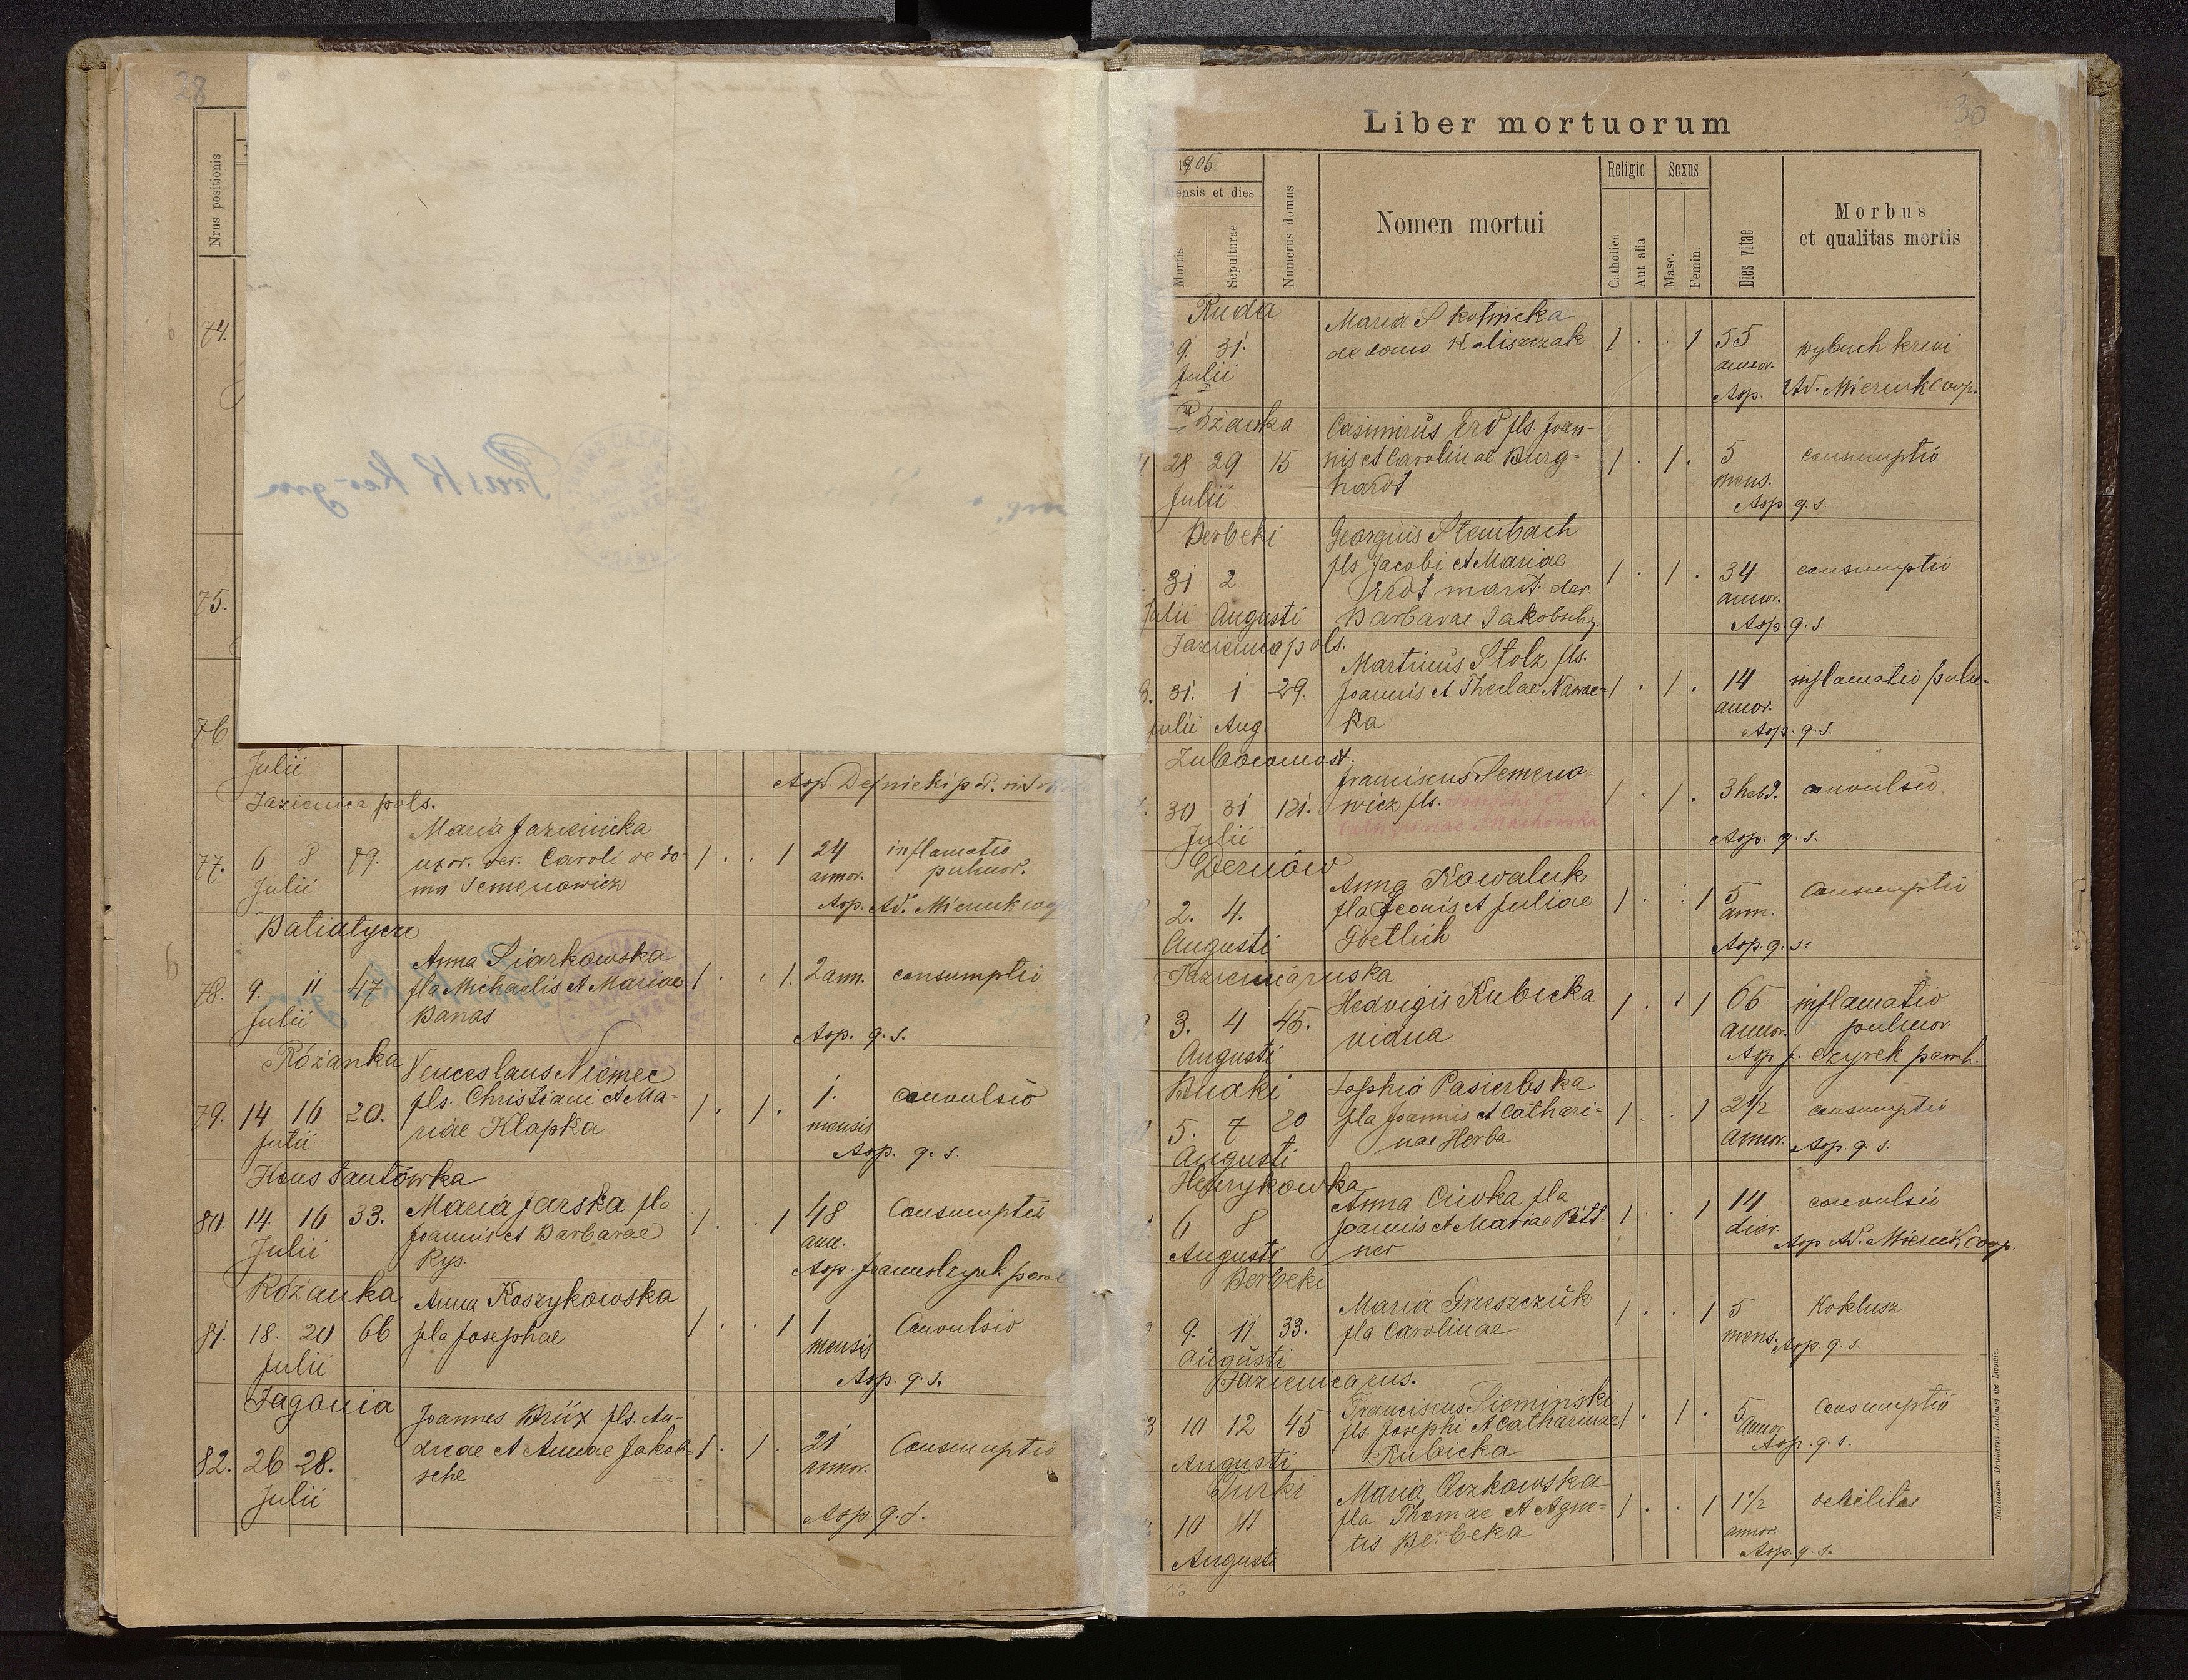 28
Nrus positionis
74.
75.
76
Julii
Asp. Dejnicki
Jazienica pols.
Maria Jazienicka
77. 6 8 79. uxor. der. Caroli de do- 1 . . 1 24 inflamatio
Julii mo Semenowicz annor. pulmor.
Asp. Ad. Mieruk coop
Batiatycze
Anna Siarkowska
78. 9. 11 47 fla Michaelis et Mariae 1 . . 1. 2 ann. consumptio
Julii Banas
Asp. q. s.
Różanka Venceslaus Niemec
79. 14 16 20. fls. Christiani et Ma- 1. 1. 1. convulsio
Julii riae Klapka mensis
Asp. q. s.
Konstantówka
80. 14. 16 33. Maria Jarska fla 1. . 1 48 Consumptio
Julii Joannis et Barbarae ann.
Rys.
Asp. Joannes Czyrek paroch
Różanka Anna Koszykowska
81. 18. 20 66 fla Josephae 1 . . 1 1 Convulsio
Julii mensis
Asp. q. s.
Jagonia
Joannes Brüx fls. An-
82. 26 28. dreae et Annae Jakob- 1 . 1. 21 Consumptio
Julii sche annor.
Asp. q. s.
30
Liber mortuorum
1905
Mensis et dies
Mortis
Sepulturae
Numerus domus
Nomen mortui
Religio
Catholica
Aut alia
Sexus
Masc.
Femin.
Dies vitae
Morbus
et qualitas mortis
Ruda Maria Skotnicka
9. 31. de domo Kaliszczak 1 . . 1 55 wybuch krwi
Julii annor.
Asp. Ad. Mieruk Coop.
Różanka Casimirus Erd fls. Joan-
28 29 15 nis et Carolinae Burg- 1 . 1 . 5 consumptio
Julii hardt mens.
Asp q. s.
Derbeki Georgius Steinbach
fls Jacobi et Mariae
31 2 Erdt marit. der. 1 . 1 . 34 consumptio
Julii Augusti Barbarae Jakobsche. annor.
Asp. q. s.
Jazienica pols.
Martinus Stolz fls.
31. 1 29. Joannis et Theclae Nawae- 1 . 1 . 14 inflamatio pulm.
Julii Aug. ka annor.
Asp. q. s.
Zubowmost.
Franciscus Semeno-
30 31 121. wicz fls. Josephi et 1 . 1 . 3 hebd. convulsio
Julii Catharinae Machowska
Asp. q. s.
Dernów
Anna Kowaluk
2. 4. fla Leonis et Juliae 1 . . 1 5 Consumptio
Augusti Goetlich ann.
Asp. q. s.
Jazienica ruska
Hedvigis Kubicka
3. 4 45. vidua 1 . . 1 65 inflamatio
Augusti annor. pulmor
Asp J. Czyrek paroch.
Budki Sophia Pasierbska
5. 7 20 fla Joannis et Cathari- 1 . . 1 2 1/2 consumptio
Augusti nae Herba annor. Asp. q. s.
Henrykowka
Anna Ciwka fla
6 8 Joannis et Mariae Bitt- 1 . . 1 14 convulsio
Augusti ner dier.
Asp. Ad. Mieruk Coop.
Derbeki
Maria Grzeszczuk
9. 11 33. fla Carolinae 1 . . 1 5 Koklusz
Augusti mens. Asp. q. s.
Jazienica rus.
Franciscus Siemiński
10 12 45 fls. Josephi et Catharinae 1 . 1 . 5 Consumptio
Augusti Kubicka annor
Asp. q. s.
Turki Maria Oczkowska
10 11 fla Thomae et Agne- 1 . . 1 1 1/2 debilitas
Augusti tis Derbeka annor.
Asp. q. s.
16
Nakładem Drukarni Ludowej we Lwowie.